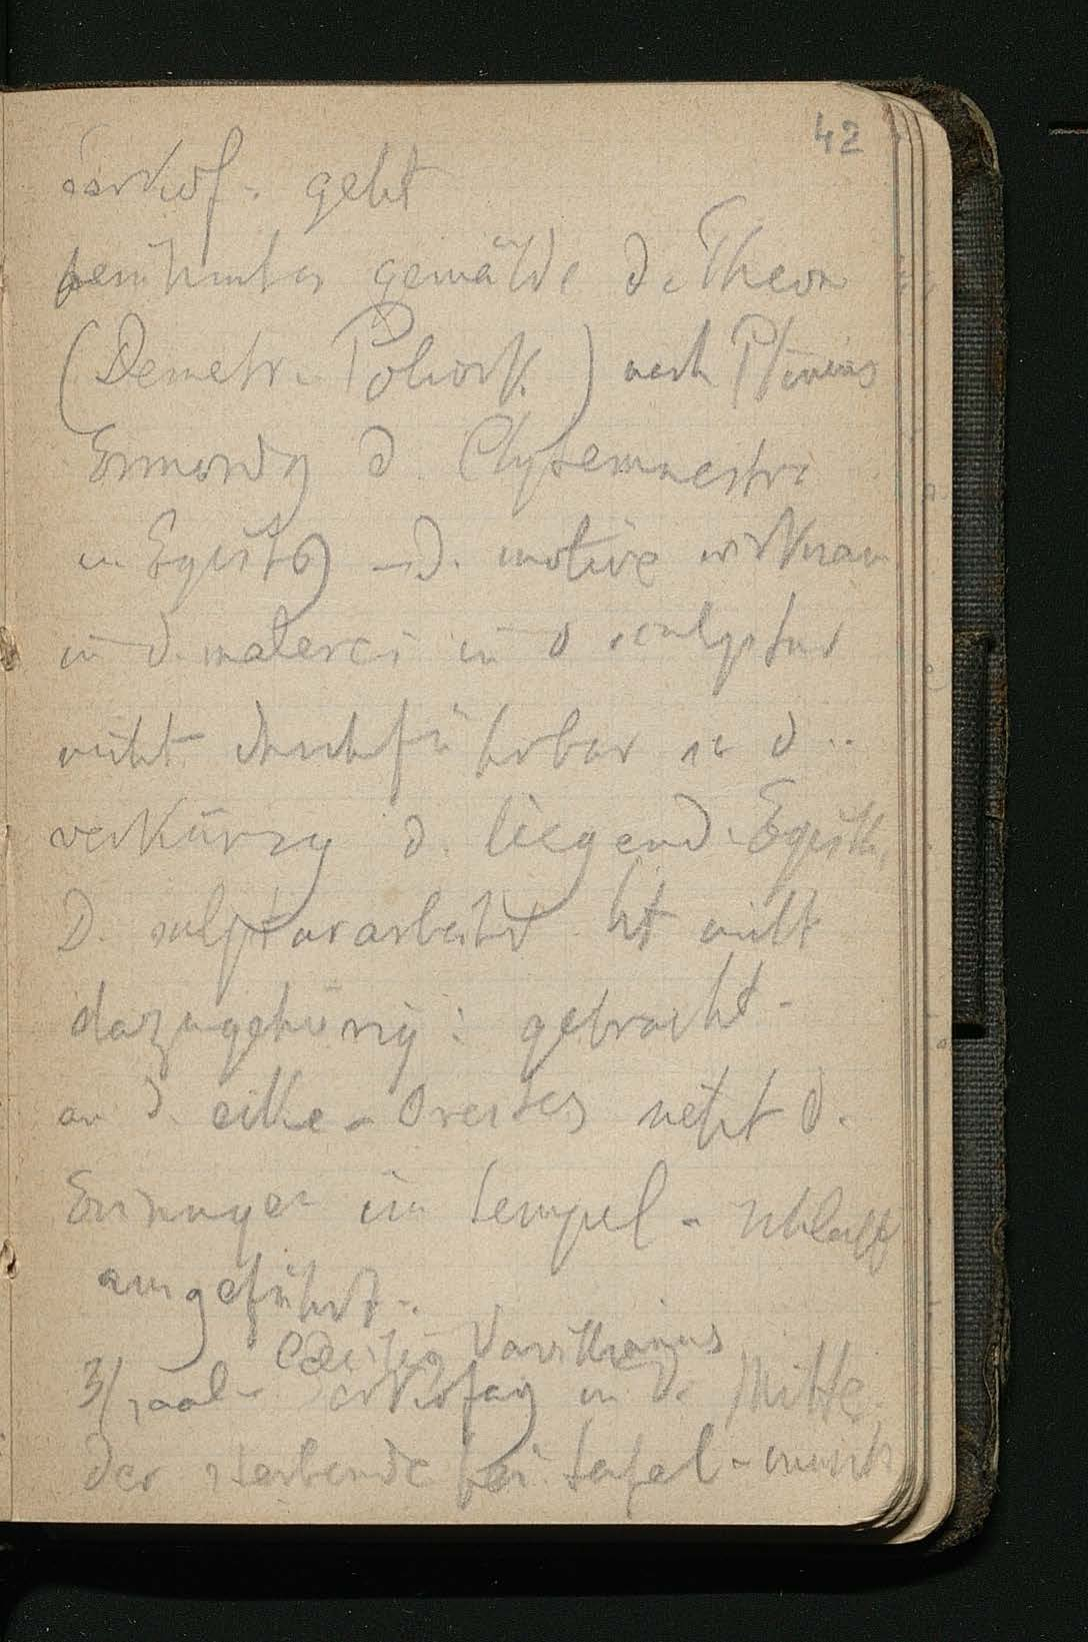 42
sarkof. geht
berühmtes gemälde d. Theon
(Demetr. Poliork.) nach Plinius
Ermordg d. Clytemnestra
u. Egisth – d. motive wirksam
in d. malerei in d sculptur
nicht durchführbar so d..
verkürzg d. liegend. Egisth,
D. sculpturarbeitet ht nicht
dazugehörig: gebracht -
an d. - Orestes setzt d.
Erinnyen im tempel - schlaff
ausgeführt.
3/ saal - Sarkofag in d. Mitte.
der sterbende bei tafel - musik